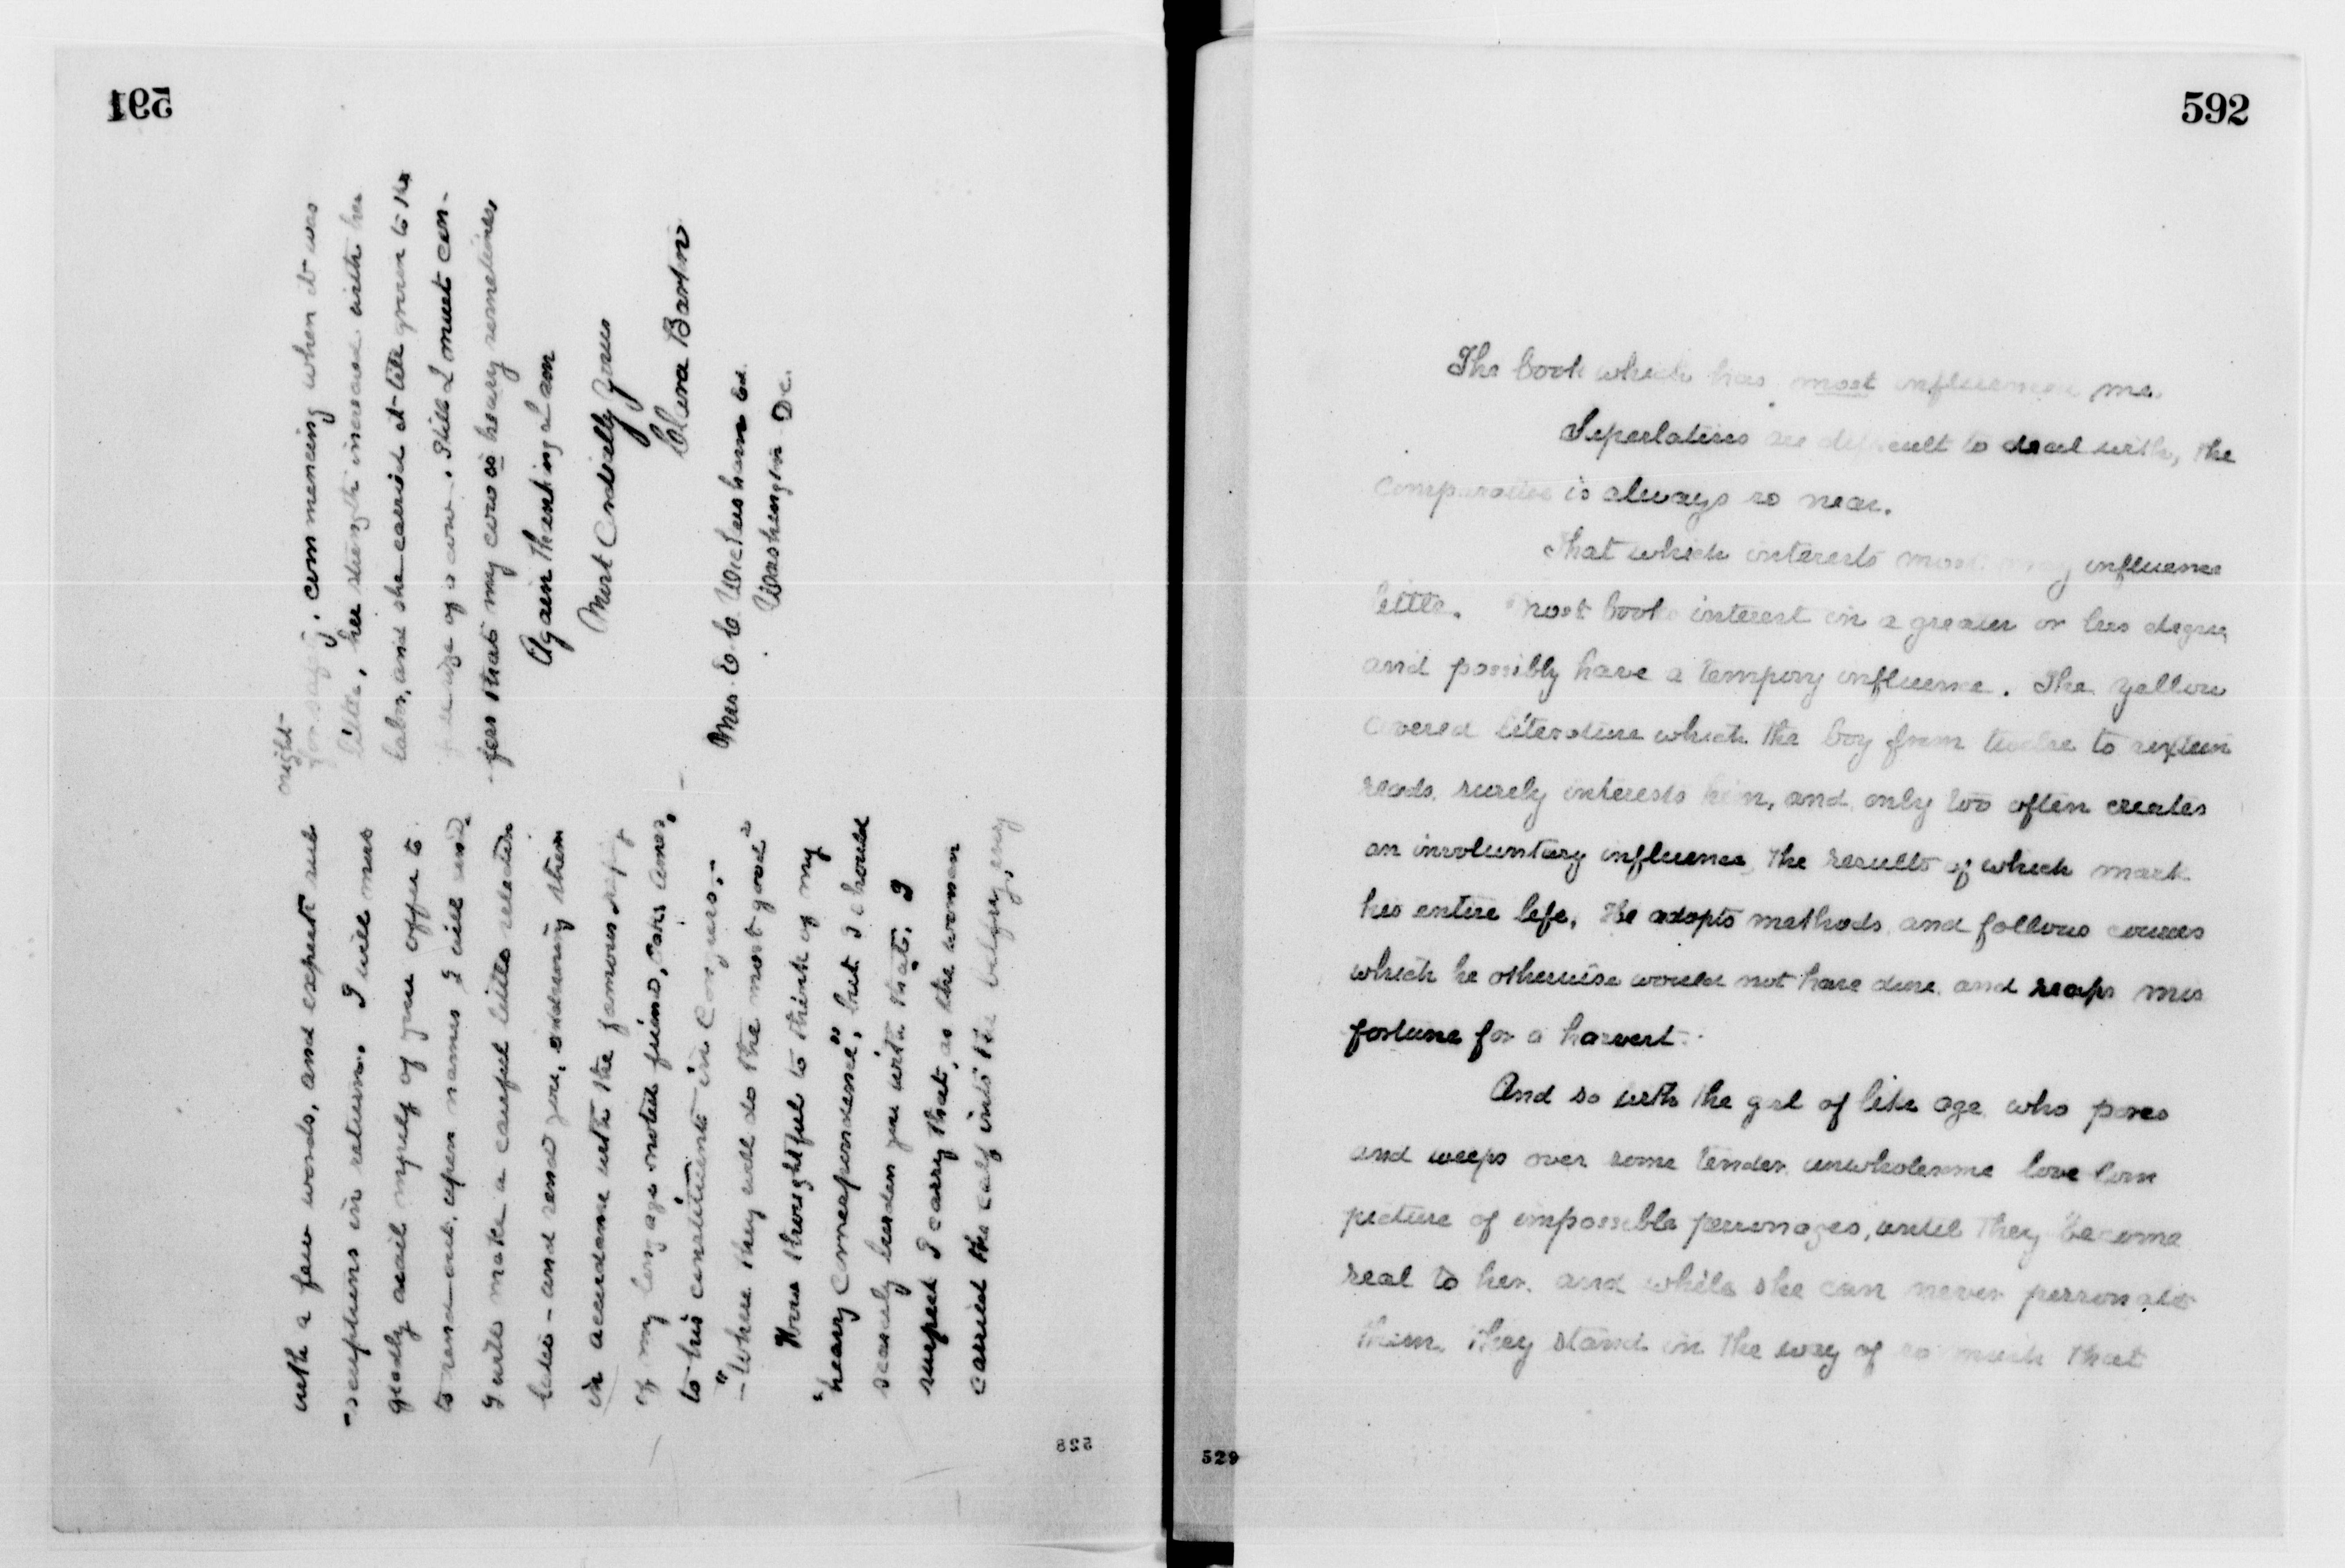 591
with a few words, and expect such
"scriptions in return. I will most
gladly avail myself of your offer to
to send out, upon names I will send.
I will make a careful little selection
later - and send you, endowing them
in accordance with the famous saying
of my long ago noted friend, Oakes Ames,
to his constituents in Congress, -
- "Where they will do the most good"
How thoughtful to think of my
"heavy correspondence", but I should
scarcely burden you with that. I
suspect I carry that, as the woman
carried the calf into the belfry, every
night
for safety, commencing when it was
little, her strength increased with her
labor, and she carried it till grown to the
full size of a cow. Still I must con-
fess that my cow is heavy sometimes,
Again thanking I am
Most Cordially Yours
Clara Barton
Mrs. E. C. Wickersham Ed.
Washington D.C.
528
592
The book which has most influenced me
Superlatives are difficult to deal with, the
comparative is always so near.
That which interests most may influence
little. Most books interest in a greater or less degree,
and possibly have a tempory influence. The yellow
covered literature which the boy from twelve to sixteen
reads, surely interests him, and only too often creates
an involuntary influence, the results of which mark
his entire life. He adopts methods and follows courses
which he otherwise would not have done, and reaps mis
fortune for a harvest.
And so with the girl of like age who pores
and weeps over some tender, unwholesome love lorn
picture of impossible personages, until they become
real to her, and while she can never personate
them, they stand in the way of so much that
529